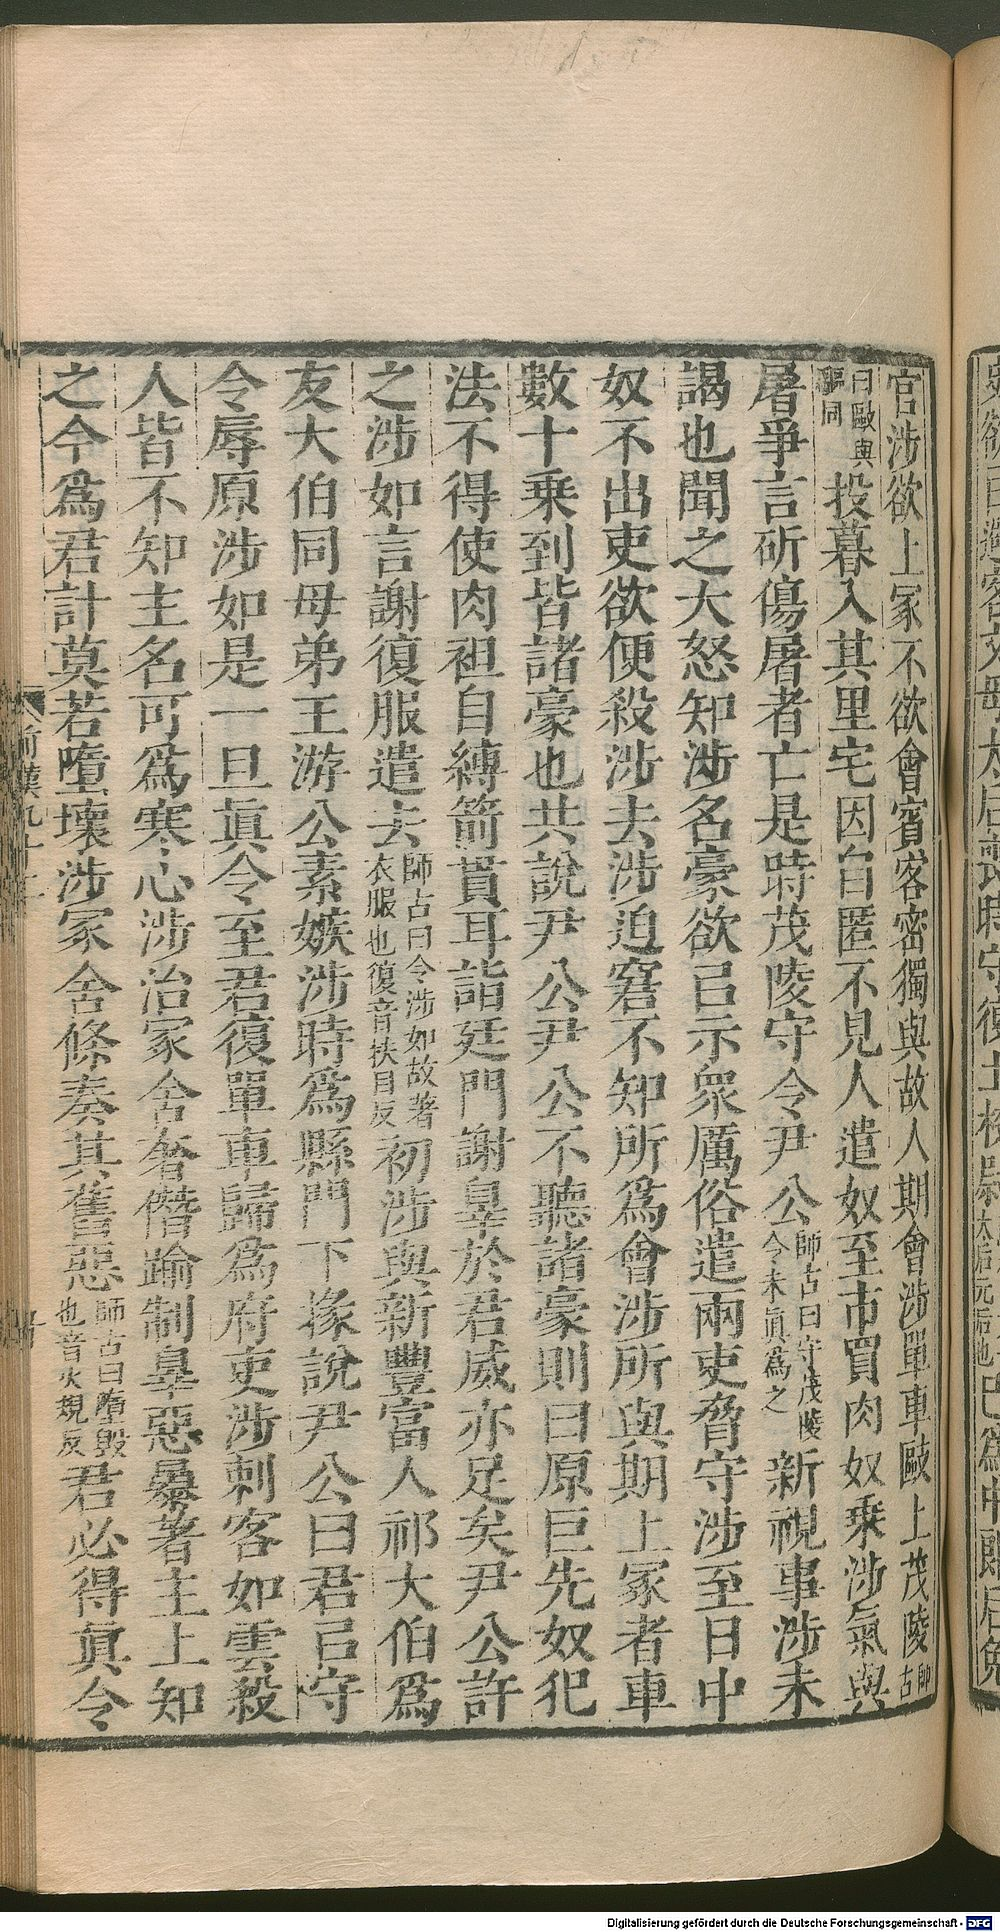 官涉欲上冢不欲會賓客密獨與故人期會涉單車敺上茂陵師古
曰敺與驅同投暮入其里宅因自匿不見人遣奴至市買肉奴乘涉氣與
屠爭言斫傷屠者亡是時茂陵守令尹公師古曰守茂陵令未眞爲之新視事涉未
謁也聞之大怒知涉名豪欲㠯示衆厲俗遣兩吏脅守涉至日中
奴不出吏欲便殺涉去涉迫窘不知所爲會涉所與期上冢者車
數十乘到皆諸豪也共說尹公尹公不聽諸豪則曰原巨先奴犯
法不得使肉袒自縛箭貫耳詣廷門謝辠於君威亦足矣尹公許
之涉如言謝復服遣去師古曰令涉如故著衣服也復音扶目反初涉與新豐富人祁大伯爲
友大伯同母弟王游公素嫉涉時爲縣門下掾說尹公曰君㠯守
令辱原涉如是一旦眞令至君復單車歸爲府吏涉刺客如雲殺
人皆不知主名可爲寒心涉治冢舍奢僭踰制辠惡暴著主上知
之今爲君計莫若墮壞涉冢舍條奏其舊惡師古曰墮毀也音火規反君必得眞令
前漢九十二
Digitalisierung gefördert durch die Deutsche Forschungsgemeinschaft - DFG